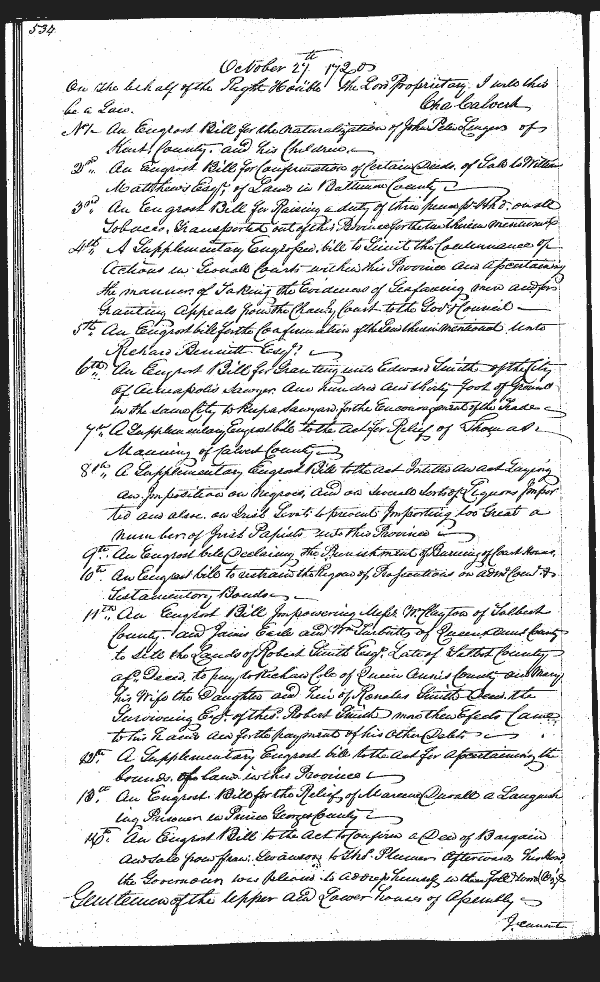 534
October 27th 1720
On the behalf of the Right Honble the Lord Proprietary I will this
be a Law. Cha Calvert
No 1 An Engrost Bill for the Naturalization of John Peter of
Kent County and his Children
2nd An Engrost Bill for Confirmation of Certain Deeds of Sale to William
Matthews Esqr. of Lands in Baltimore County
3rd An Engrost Bill for Raising a duty of three pence p hhd on all
Tobacco Transported out of this Province for the uses therein mentioned
4th A Supplementary Engrossed bill to Limit the Continuance of
Actions in Severall Courts within this Province and ascertaining
the manner of Taking the Evidences of Seafaring men and for
Granting Appeals from the Chancy Court to the Govr & Council
5th An Engrost bill for the Confirmation of the Land therein mentioned unto
Richard Bennett Esqr.
6th An Engrost Bill for Granting unto Edward Smith of the City
of Annapolis Sawyer One hundred and thirty foot of Ground
in the same City to keep a Sawyard for the Encouragement of the Trade
7th A Supplementary Engrost bill to the Act for Relief of Thomas
Manning of Calvert County
8th A Supplementary Engrost Bill to the Act Intitled An Act Laying
an Imposition on Negroes, and on Severall Sorts of Liquors Impor
ted and also on Irish Servts. to prevent Importing too Great a
number of Irish Papists into this Province
9th An Engrost bill Declaring the Punishment of Burning of Court Houses
10th An Engrost bill to restrain the Rigour of Prosecutions on admr Cond. &
Testamentary Bonds
11th An Engrost Bill Impowering Messr. Wm Clayton of Talbott
County and James Earle and Wm Turbutt of Queen Anns County
to Sell the Lands of Robert Smith Esqr. Late of Talbot County
afd. Deced. to pay to Richard Cole of Queen Annes County and Mary
his Wife the Daughter and Heir of Renatus Smith Deced. the
Surviving Exr. of the sd. Robert Smith more then Effects Came
to his hands and for the payment of his other Debts
12th A Supplementary Engrost bill to the Act for Ascertaining the
bounds of land in this Province
13th An Engrost Bill for the Relief of Mareen Duvall a Languish
ing Prisoner in Prince Georges County
14th An Engrost Bill to the Act to Confirm a Deed of Bargain
and Sale from Fran. Swanson to Thos. Plumer Afterwards his Honr
the Governour was pleased to address himself in these foll. words Vizt.
Gentlemen of the Upper and Lower houses of Assembly
I cannot